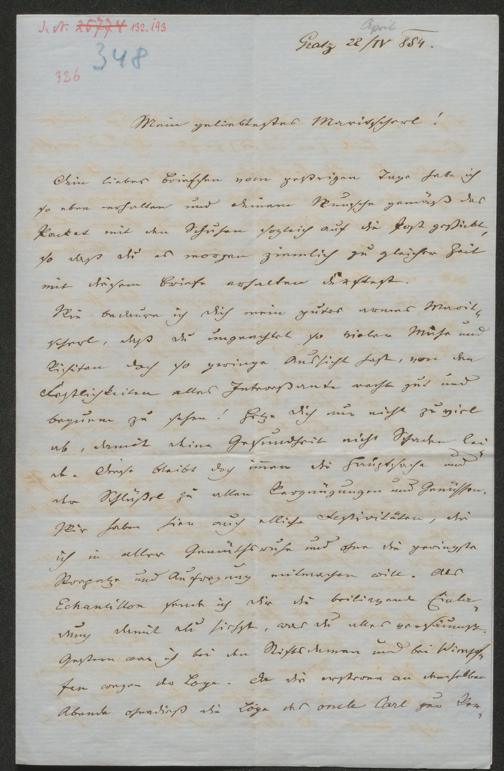 J. N. 25774 132.193
348
326
April
Gratz 22/IV 854.
Mein geliebtestes Maritscherl!
Dein liebes Briefchen vom gestrigen Tage habe ich
so eben erhalten und deinem Wunsche gemäß das
Packet mit den Schuhen sogleich auf die Post geschickt,
so daß du es morgen ziemlich zu gleicher Zeit
mit diesem Briefe erhalten dürftest.
Nur bedaure ich dich mein gutes armes Marit-
scherl, daß du ungeachtet so vieler Mühe und
Visiten doch so geringe Aussicht hast, von den
Festlichkeiten alles Interessante recht gut und
bequem zu sehen! Hetze dich nur nicht zu viel
ab, damit deine Gesundheit nicht Schaden lei-
de. Diese bleibt doch immer die Hauptsache und
der Schlüßel zu allen Vergnügungen und Genüssen.
Wir haben hier auch etliche Festivitäten, die
ich in aller Gemüthsruhe und ohne die geringste
und Aufregung mitmachen will. Als
Echantillon sende ich dir die beiliegende Einla-
dung damit du siehst, was du alles versäumst.
Gestern war ich bei den Stiftsdamen und bei Wimpf-
fen wegen der Loge. Da die ersteren an demselben
Abende ohnedieß die Loge des oncle Carl zur